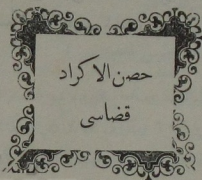 حصن الاكراد
قضاسی